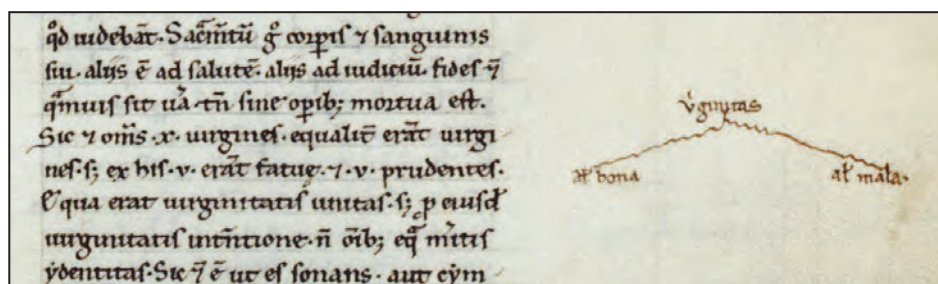 qd̄ uidebāt. Sac̄m̄tū gͦ corp̄is ⁊ sanguinis
sui. aliis ē ad salutē. aliis ad iudiciū. fides ⁊̄
q̄muis sit uā. tn̄ sine opib; mortua est.
Sic ⁊ om̄s .x. uirgines. equalit̄ erāt uirgi
nes. s; ex his .v. erāt fatuę. ⁊ .v. prudentes.
Equa erat uirginitatis unitas. s; ꝓ eiusd̄
uirginitatis intn̄tione. n̄ oīb; eq̄ m̄itis
ydentitas. Sic ⁊̄ ē ut es sonans. aut cym
vͥginitas
al̄ bona
al̄ mala.